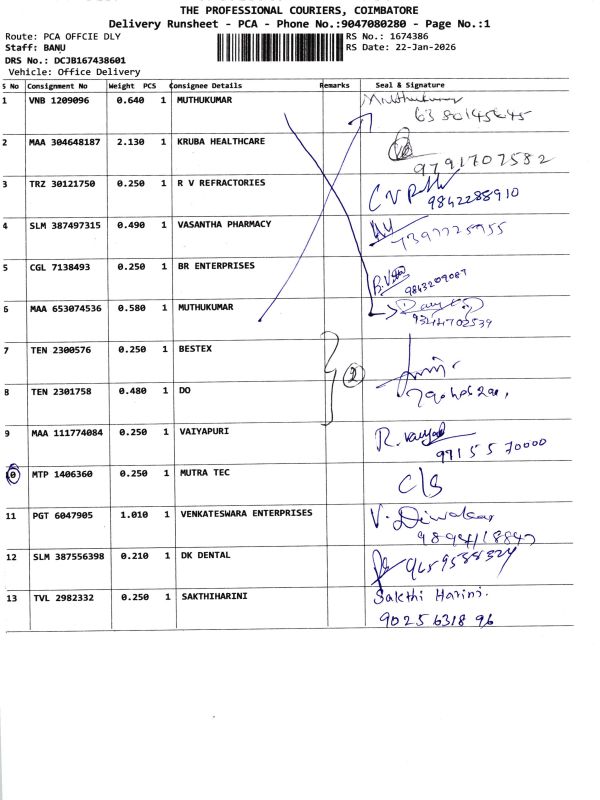 THE PROFESSIONAL COURIERS, COIMBATORE
Delivery Runsheet - PCA - Phone No.:9047080280 - Page No.:1
Route: PCA OFFCIE DLY RS No.: 1674386
Staff: BANU RS Date: 22-Jan-2026
DRS No.: DCJB167438601
Vehicle: Office Delivery
S No Consignment No Weight PCS Consignee Details Remarks Seal & Signature
1 VNB 1209096 0.640 1 MUTHUKUMAR Muthukumar
6380145645
2 MAA 304648187 2.130 1 KRUBA HEALTHCARE
9791707582
3 TRZ 30121750 0.250 1 R V REFRACTORIES
9842288910
4 SLM 387497315 0.490 1 VASANTHA PHARMACY
7397725955
5 CGL 7138493 0.250 1 BR ENTERPRISES
9843209087
6 MAA 653074536 0.580 1 MUTHUKUMAR
9344702539
7 TEN 2300576 0.250 1 BESTEX
2
8 TEN 2301758 0.480 1 DO
9 MAA 111774084 0.250 1 VAIYAPURI
9715570000
10 MTP 1406360 0.250 1 MUTRA TEC C/S
11 PGT 6047905 1.010 1 VENKATESWARA ENTERPRISES V. Diwakar
12 SLM 387556398 0.210 1 DK DENTAL 9659588324
13 TVL 2982332 0.250 1 SAKTHIHARINI Sakthi Harini.
90256318 96